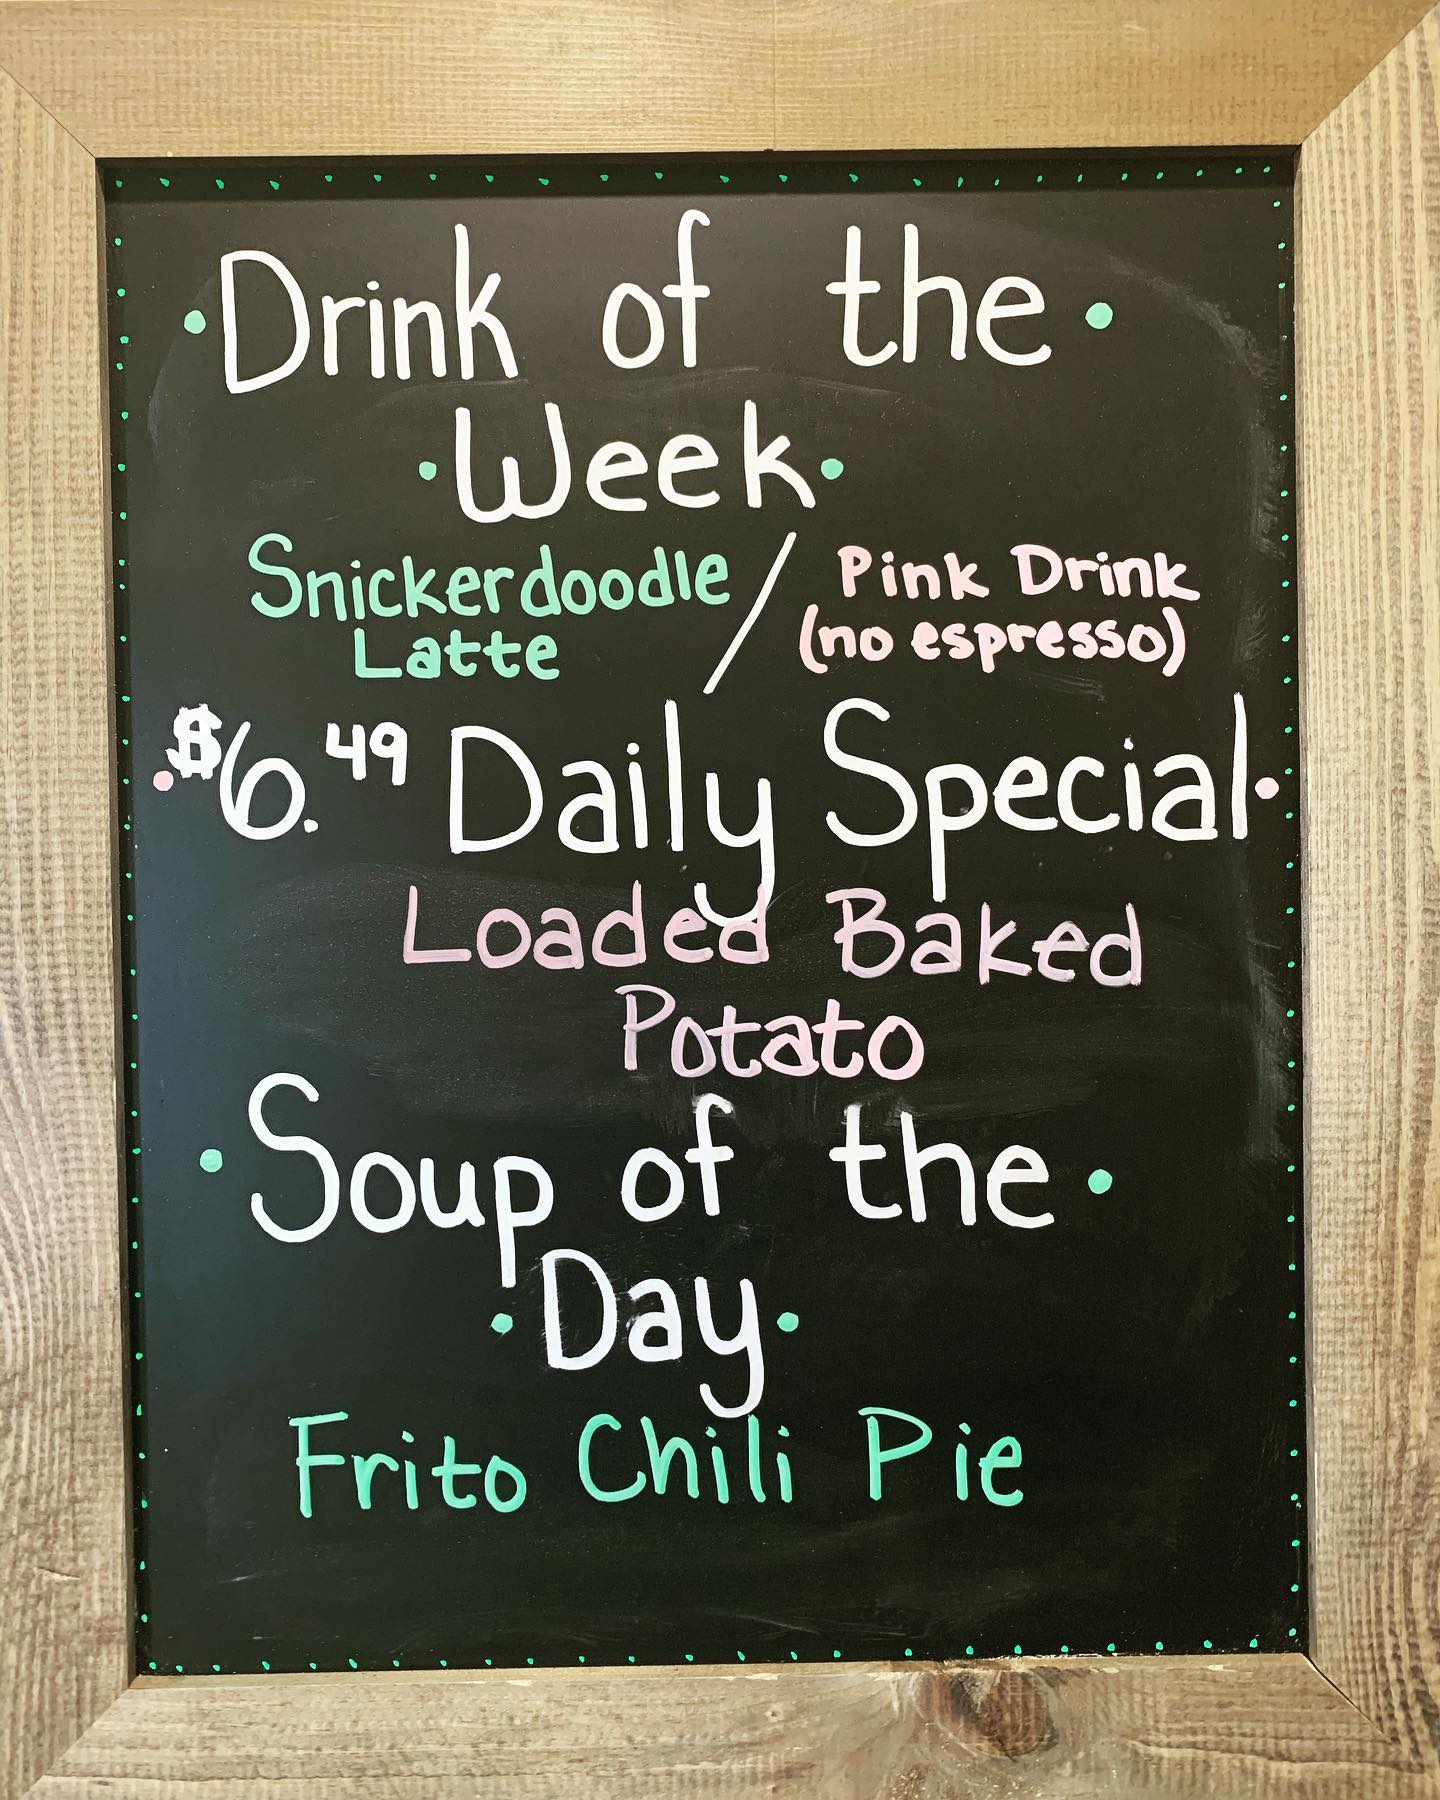 Drink of the
Week
Snickerdoodle / Pink Drink
Latte (no espresso)
$6.49 Daily Special
Loaded Baked
Potato
Soup of the
Day
Frito Chili Pie